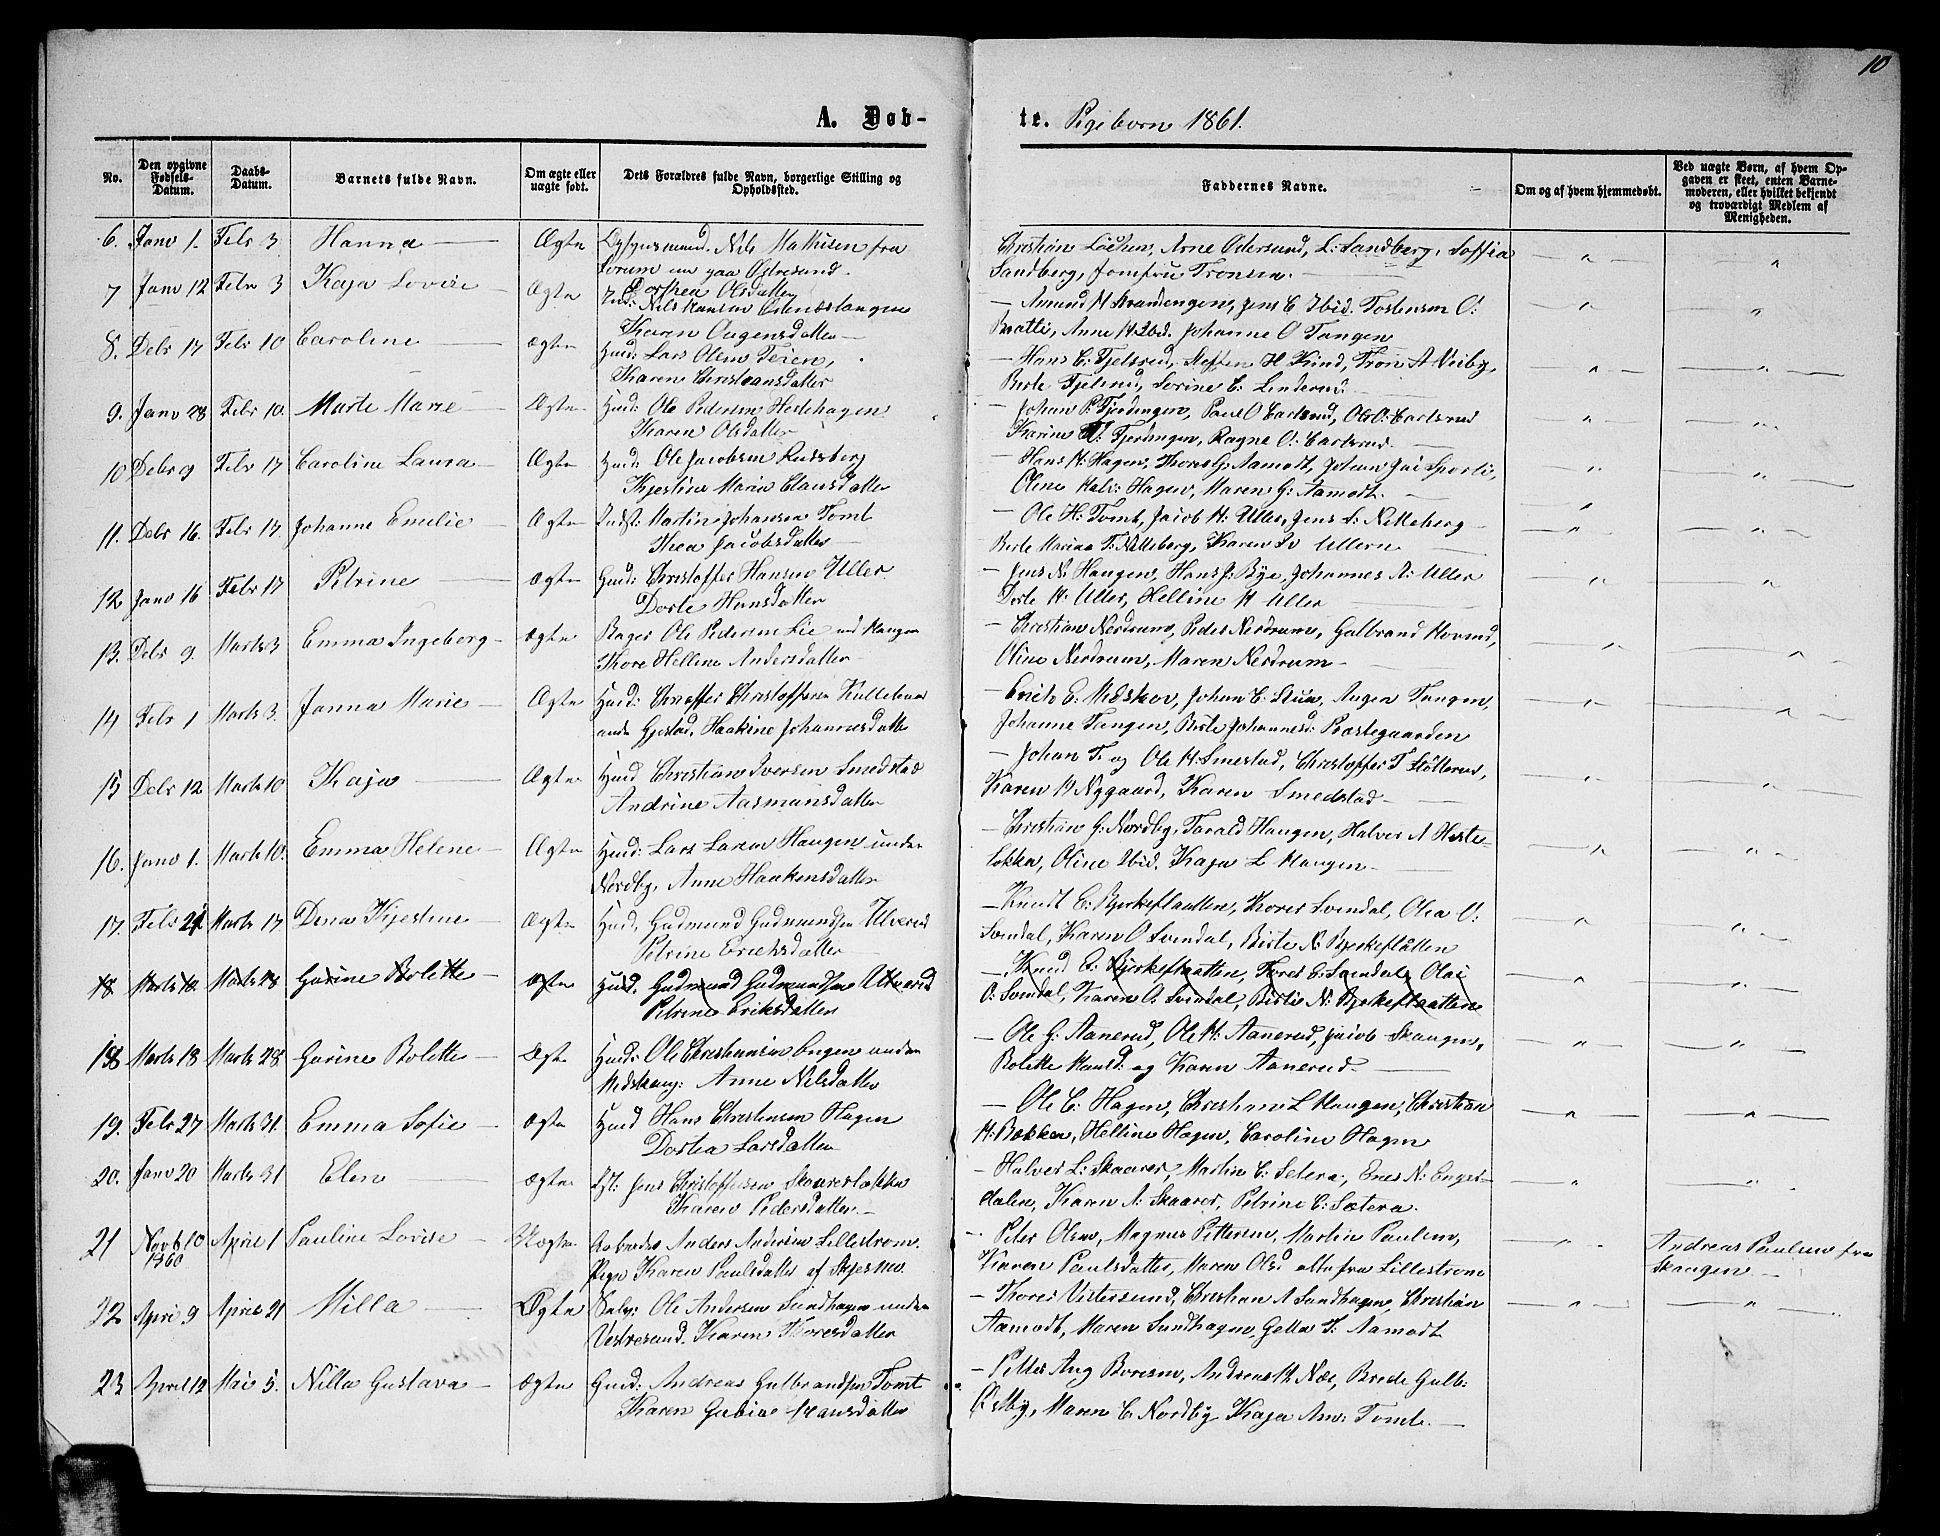 10
A. Døb-
te. Pigebørn 1861.
No.
Den opgivne Fødsels-Datum.
Daabs-Datum.
Barnets fulde Navn.
Om ægte eller uægte født.
Dets Forældres fulde Navn, borgerlige Stilling og Opholdssted.
Faddernes Navne.
Om og af hvem hjemmedøbt.
Ved uægte Børn, af hvem Opgaven er skeet, enten Barnemoderen, eller hvilket bekjendt og troværdigt Medlem af Menigheden.
6. Janv 1. Febr 3 Hanna — Ægte Nils Mathisen fra
Sorum nu paa Østresund.
Dorthea Olsdatter
Christian Løchen, Arne Odersund, L. Sandberg, Soffia
Sandberg, Jomfru Tronsen. — " — "
7 Janv 12 Febr 3 Kaja Lovise — Ægte Nils Hansen
Karen Augensdatter —
— Amund H Strandengen, Jens C Ibid. Tostensen O:
Bratli, Anne H. Ibid. Johanne O Tangen — " — "
8. Debr 17 Febr 10 Caroline — Ægte Huusd: Lars Olsen Teien,
Karen Christiansdatter
— Hans C. Fjelsrud, Steffen H Rud, Tron A Visby,
Berte Fjelsrud, Sorine C. Linderud — " — "
9. Janv 28 Febr 10. Marte Marie — Ægte Huusd: Ole Pedersen Hedehagen
Karen Olsdatter
— Johan P. Tjerdingen, Paul O Carlsrud, Ole O: Carlsrud
Karine Tjerdingen, Ragne O: Carlsrud. — " — "
10 Debr 9 Febr 17 Caroline Laura — Ægte Huusd: Ole Jacobsen Rudsberg
Kjestine Maria Clausdatter
— Hans H: Hagen, Thores G. Aamodt, Johan
Oline Halv: Hagen, Maren G: Aamodt. — " — "
11. Debr 16. Febr 17. Johanne Emilie — Ægte Indst: Martin Johansen Tomt
Thea Jacobsdatter —
— Ole H: Tomt, Jacob H: Uller, Jens S: Nitteberg — "
Berte Marina T: Nitteberg, Karen Ullern — " — "
12 Janv 16 Febr 17 Petrine — Ægte Huusd: Christoffer Hansen Uller
Dorte Hansdatter
— Jens N: Haugen, Hans J: Bye, Johannes A: Uller
Dorte H: Uller, Helline H Uller — " — "
13. Debr 9. Marts 3 Emma Ingeborg — Ægte Bager Ole Pedersen Lie ved Haugen
Thore Helline Andersdatter —
— Christian Nerdrum, Peder Nerdrum, Gulbrand Hovind,
Oline Nerdrum, Maren Nerdrum — " — "
14 Febr 1 Marts 3. Janna Marie — Ægte Huusd: Christoffer Christoffersen
under Gjestad, Haakine Johannesdatter
— Erich E. Midskov, Johan C. Stuen, Augen Tangen,
Johanne Tangen, Berte Johannesd: Præstegaarden — " — "
15 Debr 12 Marts 10 Kaja — Ægte Huusd Christian Iversen Smedstad
Andrine Aasmunsdatter
— Johan T. og Ole H: Smestad, Christoffer T Slotterud,
Karen H Nygaard, Karen Smedstad — " — "
16. Janv 1. Marts 10. Emma Helene — Ægte Huusd: Lars Larsen Haugen under
Nordby, Anne Haakensdatter
— Christian G: Nordby, Tarald Haugen, Halver A Heste-
løkka, Oline Ibid. Kaja L Haugen — " — "
17. Febr 21 Marts 17 Dina Kjestine — Ægte Huusd, Gudmund Gudmundsen Ulverud
Petrine Ericksdatter —
— Knudt E: Bjerkeflaatten, Thores Svendal, Olia O:
Svendal, Karen O Svendal, Birte N: Bjerkeflåtten — " — "
18 Marts 10. Marts 28 Garine Bolette — Ægte Huusd. Gudmund Gudmundsen Ulverud
Petrine Eriksdatter
— Knud E: Bjerkeflaatten, Thores E: Svendal, Olai
O: Svendal, Karen O. Svendal, Birtie N: Bjerkeflaatten — " — "
18 Marts 18 Marts 28 Garine Bolette — Ægte Huusd: Ole Christiansen Engen under
Midskoug: Anne Nilsdatter
— Ole G: Aanerud, Ole H: Aanerud, Jacob Skaugen,
Bolette og Karen Aanerud. — " — "
19. Febr 27 Marts 31. Emma Sofie — Ægte Huusd Hans Christensen Hagen
Dortea Larsdatter
— Ole C: Hagen, Christian L Haugen, Christian
H: Bækken, Helline Hagen, Caroline Hagen — " — "
20. Janv 20 Marts 31 Elen — Ægte Jens Christoffersen Skaaresløkka
Karen Pedersdatter —
— Halver L: Skaarer, Martin C: Setera, Enes N: Enges-
dalen, Karen A: Skaarer, Petrine C: Sætera. — " — "
21 Novb 10 1860 April 1 Pauline Lovise — Uægte Arbeider Anders Andersen Lillestrøm.
Pige Karen Paulsdatter af Skjesmo.
— Peter Olsen, Magnus Pettersen, Martin Paulsen,
Karen Paulsdatter, Maren Olsd alle fra Lillestrøm — " —
Andreas Paulsen fra
Skaugen —
22 April 9 April 21 Milla — Ægte Ole Andersen Sundhagen under
Vestresund. Karen Thoresdatter
— Thores Vistersund, Christian A Sundhagen, Christian
Aamodt, Maren Sundhagen, Gella T: Aamodt — " — "
23 April 12 Mai 5. Nilla Gustava — Ægte Huusd: Andreas Gulbrandsen Tomt
Karen Gubia Hansdatter
— Petter Aug Boresen, Andreas R Næs, Brede Gulb:
Østby, Maren C Nordby Kaja An: Tomt. —